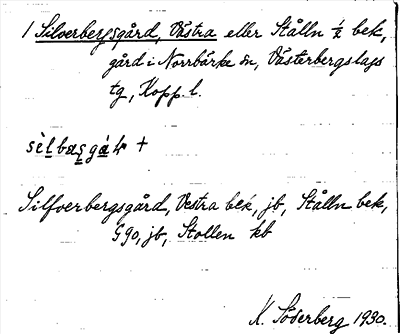 1 Silverbergsgård, Västra eller Stålln ½ bek,
gård i Norrbärke sn, Västerbergslags
tg, Kopp. l.
Silfverbergsgård, Vestra bek, jb, Stålln bek,
G 90, jb, Stollen kb
K. Söderberg 1930.